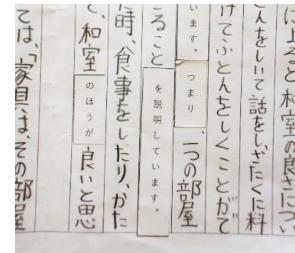 に上ると和室の良さについ
んをしいて話をしざたくに料
けてふとんをしくことがで
います。つまり、一つの部屋
ることを説明しています。
た時、食事をしたり、かた
て、和室のほうが良いと思
ては、「家具は、その部屋